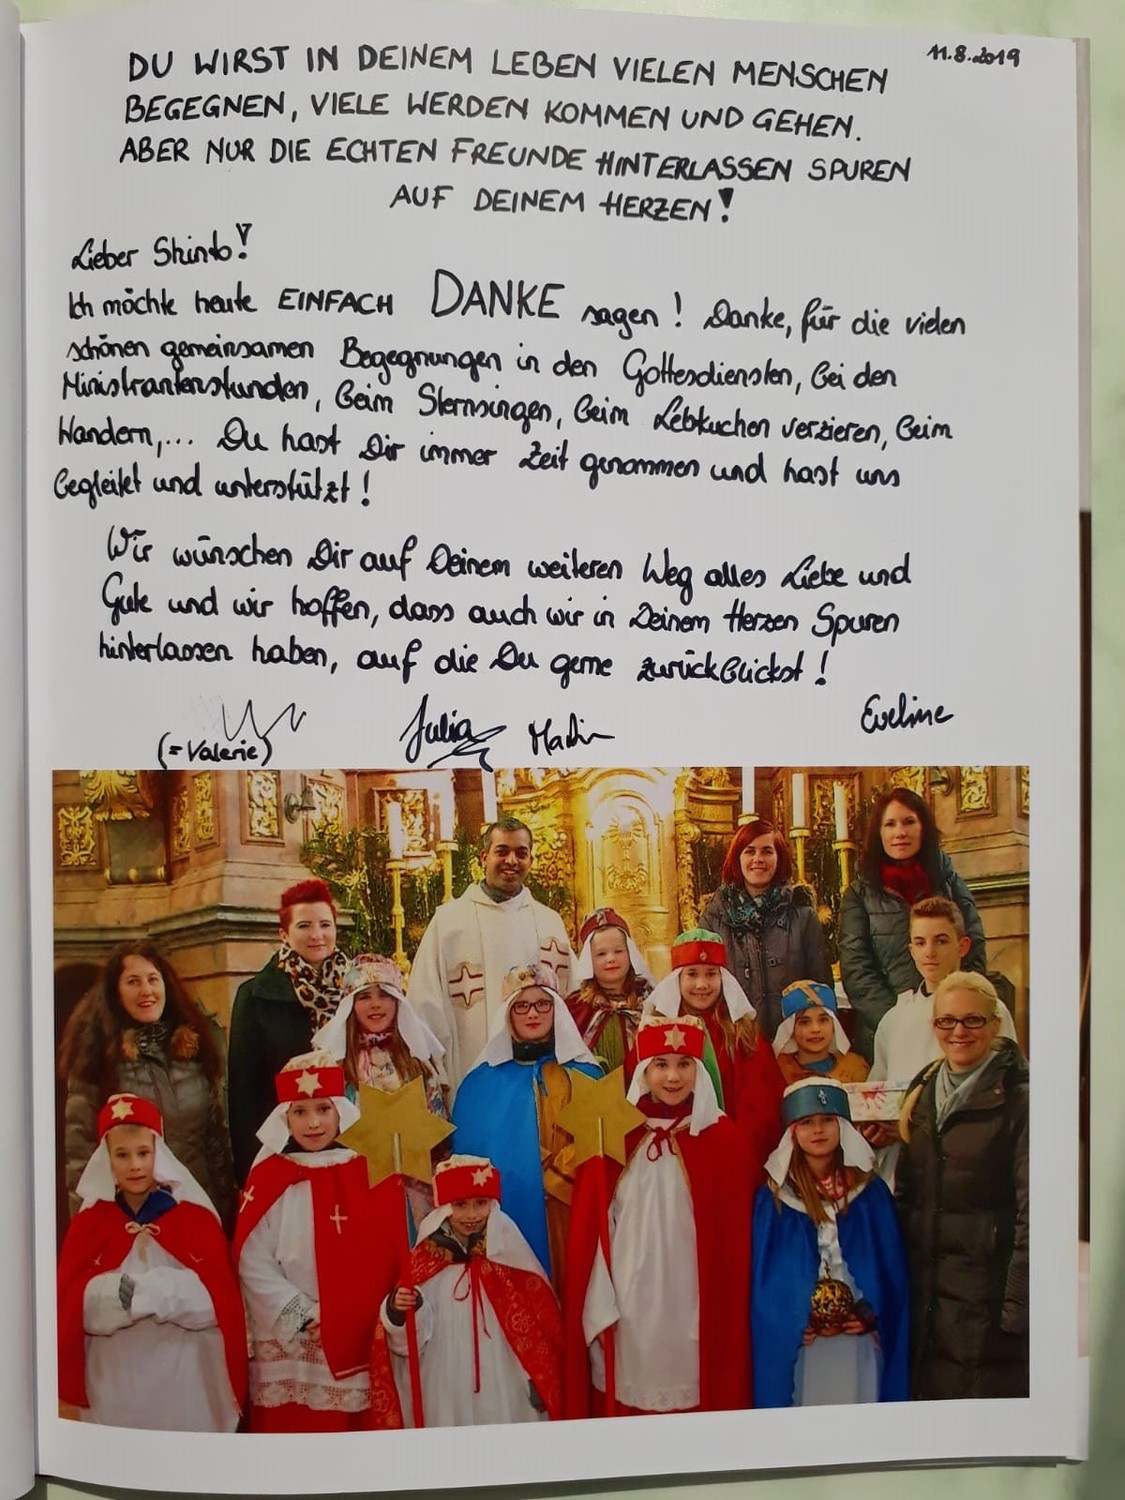 11.8.2019
DU WIRST IN DEINEM LEBEN VIELEN MENSCHEN
BEGEGNEN, VIELE WERDEN KOMMEN UND GEHEN.
ABER NUR DIE ECHTEN FREUNDE HINTERLASSEN SPUREN
AUF DEINEM HERZEN!
Lieber Shinto!
Ich möchte heute EINFACH DANKE sagen! Danke, für die vielen
schönen gemeinsamen Begegnungen in den Gottesdiensten, bei den
Ministrantenstunden, beim Sternsingen, beim Lebkuchen verzieren, beim
Wandern,... Du hast Dir immer Zeit genommen und hast uns
begleitet und unterstützt!
Wir wünschen Dir auf Deinem weiteren Weg alles Liebe und
Gute und wir hoffen, dass auch wir in Deinem Herzen Spuren
hinterlassen haben, auf die Du gerne zurückblickst!
(=Valerie) Julia Martin Eveline